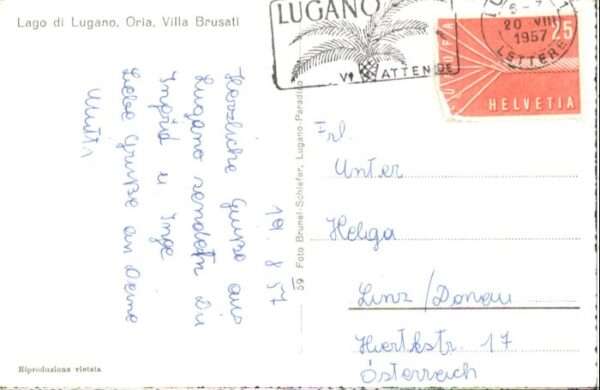 Lago di Lugano, Oria, Villa Brusati
LUGANO
VI ATTENDE
6-
20 VIII
1957
LETTERE
25
EUROPA
HELVETIA
19. 8. 57
Herzliche Grüße aus
Lugano senden Dir
Ingrid u. Inge
Liebe Grüße an Deine
Mutti
59 Foto Brunel-Schiefer, Lugano-Paradiso
Frl.
Unter
Helga
Linz/Donau
17
Österreich
Riproduzione vietata